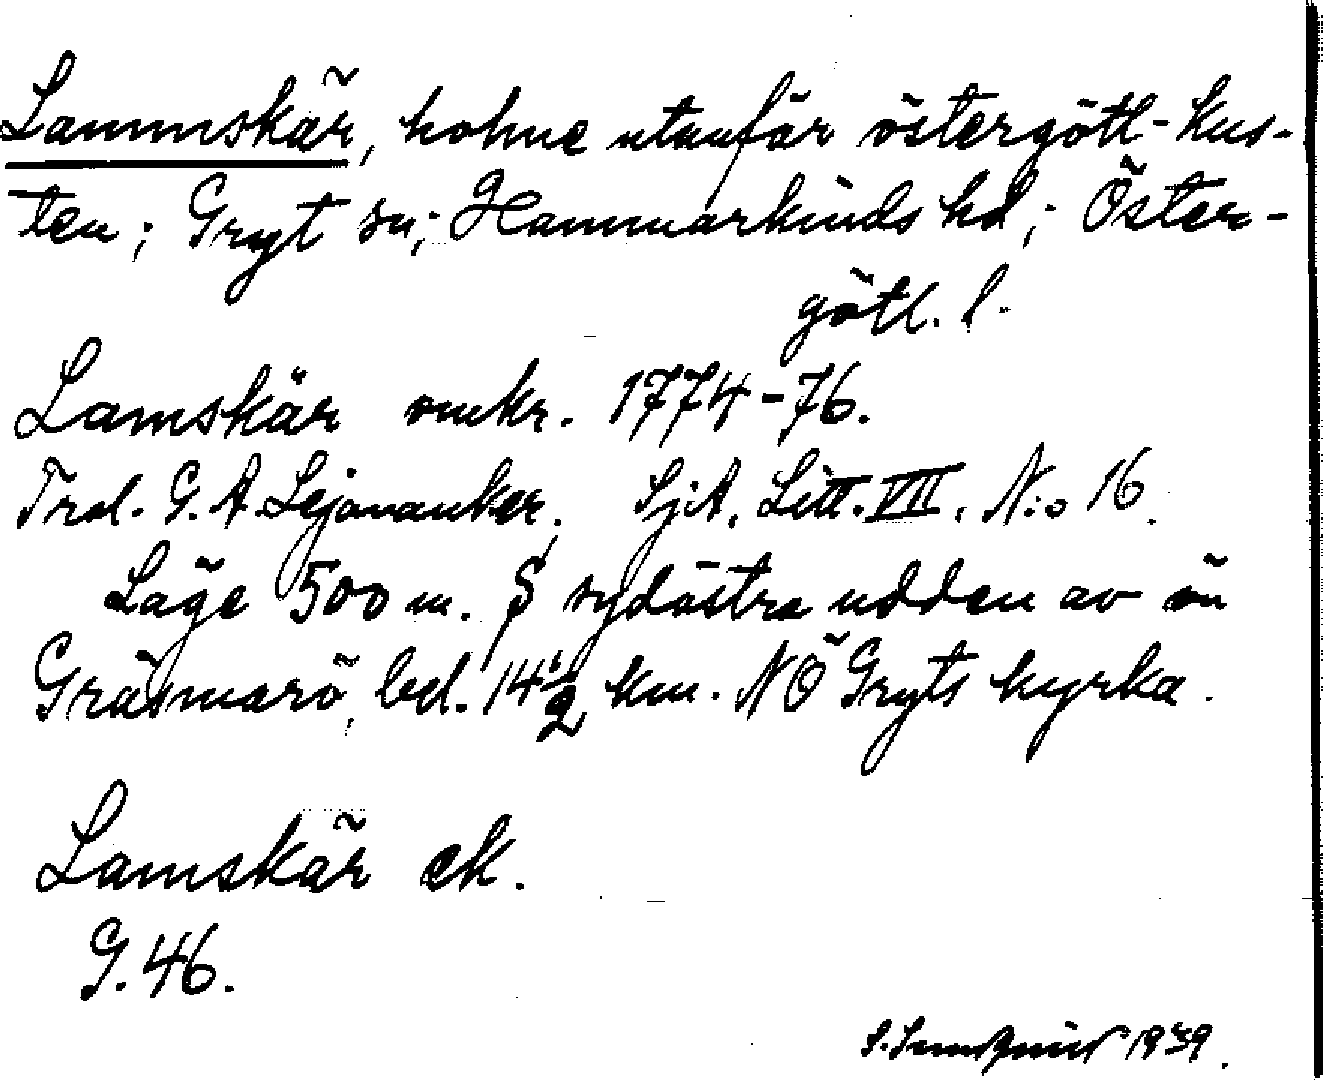 Lammskär, holme utanför östergötl-kus-
ten; Gryt sn; Hammarkinds hd; Öster-
götl. l.
Lamskär omkr. 1774-76.
Trol. G. A. Lejonanker. SjA, Litt. VII, N:o 16.
Läge 500 m. S sydöstra udden av ön
Gräsmarö, bel. 14 1/2 km. NÖ Gryts kyrka.
Lamskär ek.
G. 46.
S. 1939.